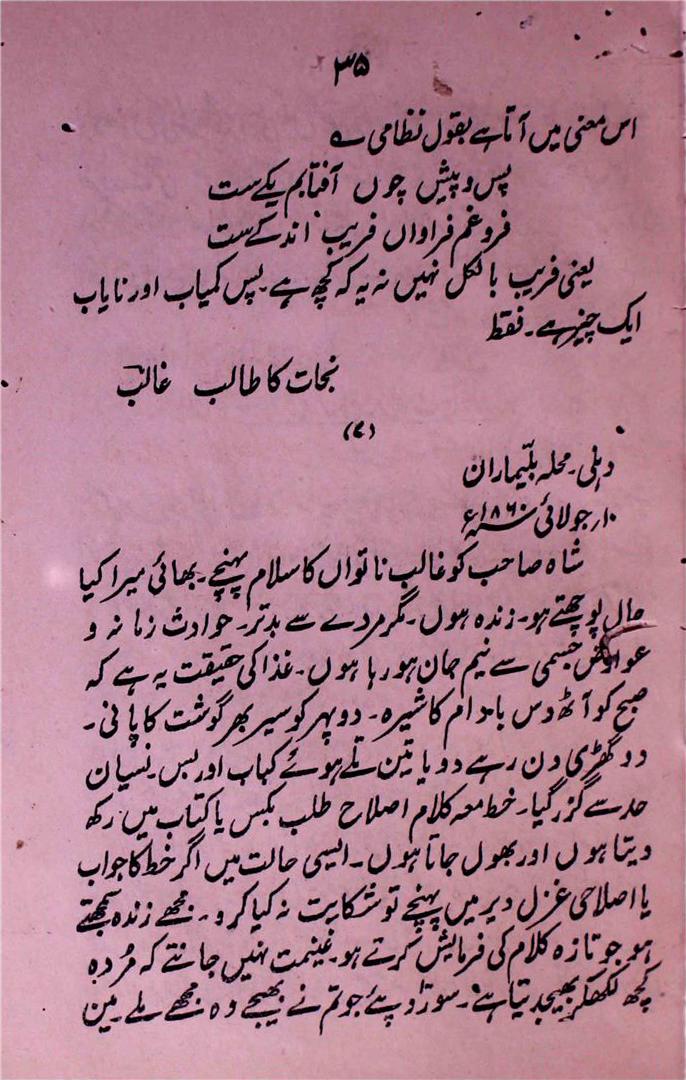 ۳۵
اس معنی میں آتا ہے بقول نظامی ؎
پس و پیش چوں آفتابم یکے ست
فروغم فراواں فریب اندکے ست
یعنی فریب بالکل نہیں نہ یہ کہ کچھ ہے۔ پس کمیاب اور نایاب
ایک چیز ہے۔ فقط
نجات کا طالب غالب
دہلی۔ محلہ بلّیماران
۱۰؍ جولائی سنہ ۱۸۶۰ء
شاہ صاحب کو غالب ناتواں کا سلام پہنچے۔ بھائی میرا کیا
حال پوچھتے ہو۔ زندہ ہوں۔ مگر مردے سے بدتر۔ حوادث زمانہ و
عوارض جسمی سے نیم جان ہو رہا ہوں۔ غذا کی حقیقت یہ ہے کہ
صبح کو آٹھ دس بادام کا شیرہ۔ دوپہر کو سیر بھر گوشت کا پانی۔
دو گھڑی دن رہے دو یا تین تلے ہوئے کباب اور بس۔ نسیان
حد سے گزر گیا۔ خط معہ کلام اصلاح طلب بکس یا کتاب میں رکھ
دیتا ہوں اور بھول جاتا ہوں۔ ایسی حالت میں اگر خط کا جواب
یا اصلاحی غزل دیر میں پہنچے تو شکایت نہ کیا کرو۔ مجھے زندہ سمجھتے
ہو جو تازہ کلام کی فرمایش کرتے ہو۔ غنیمت نہیں جانتے کہ مُردہ
کچھ لکھکر بھیجدیتا ہے۔ سو روپئے جو تم نے بھیجے وہ مجھے ملے۔ مین